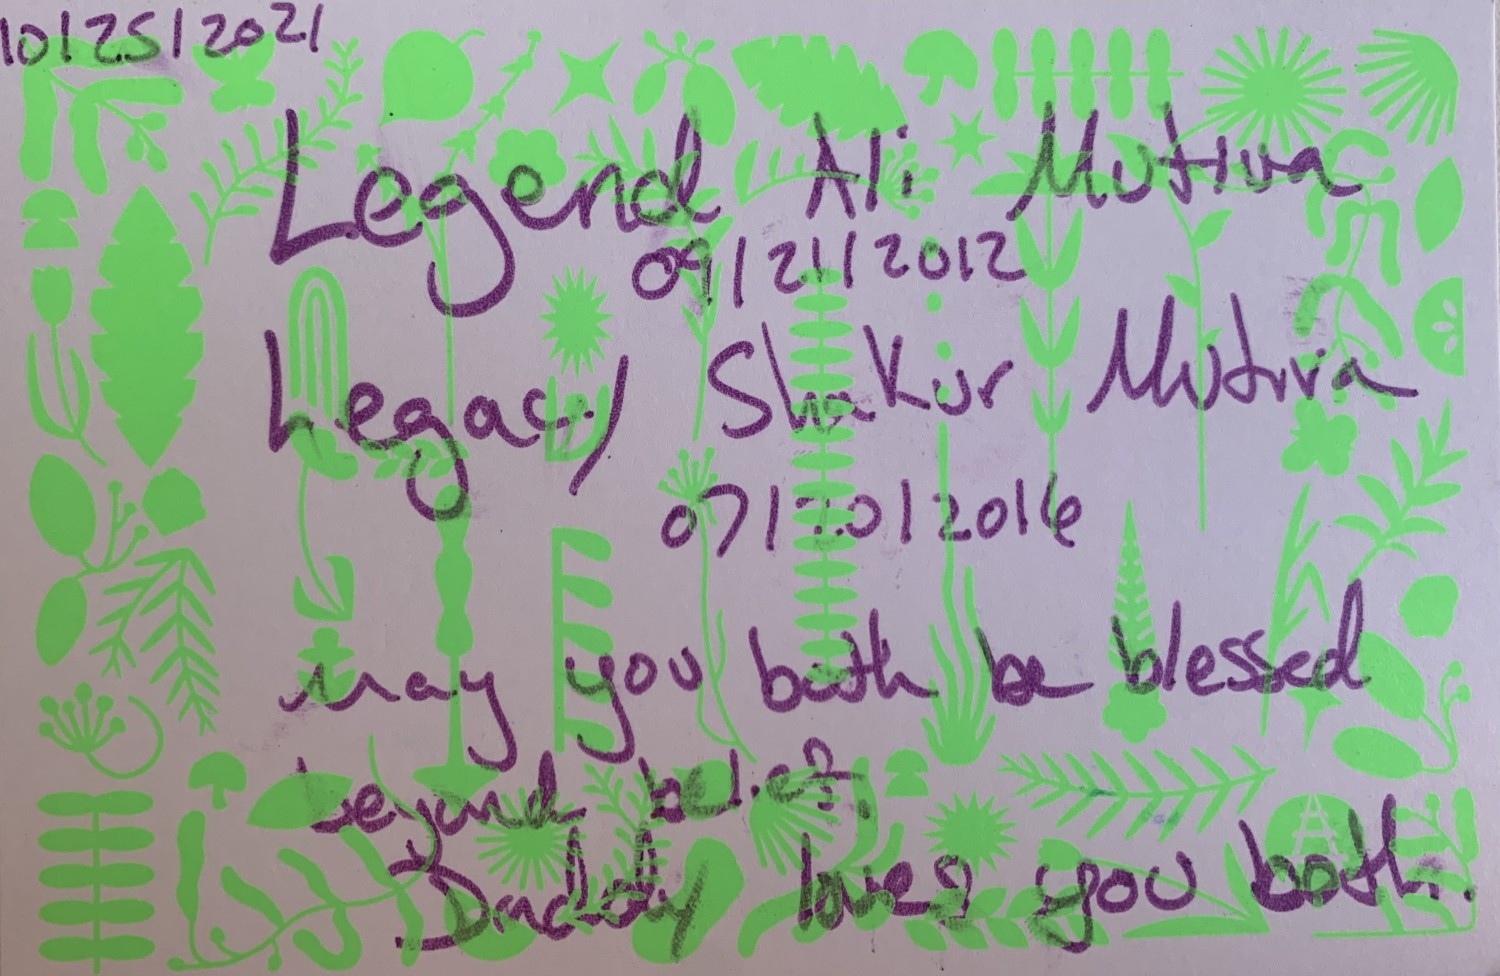 10/25/2021
Legend Ali Mutiva
09/21/2012
Legacy Shakur Mutiva
07/20/2016
may you both be blessed
beyond belief.
Daddy loves you both.